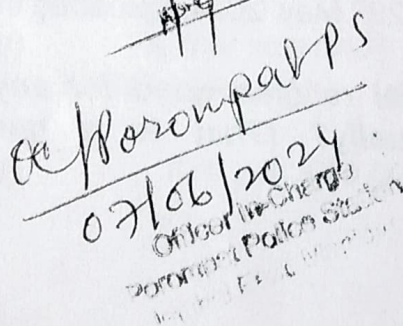 OC/Porompat PS
07/06/2024
Officer In-Charge
Porompat Police Station